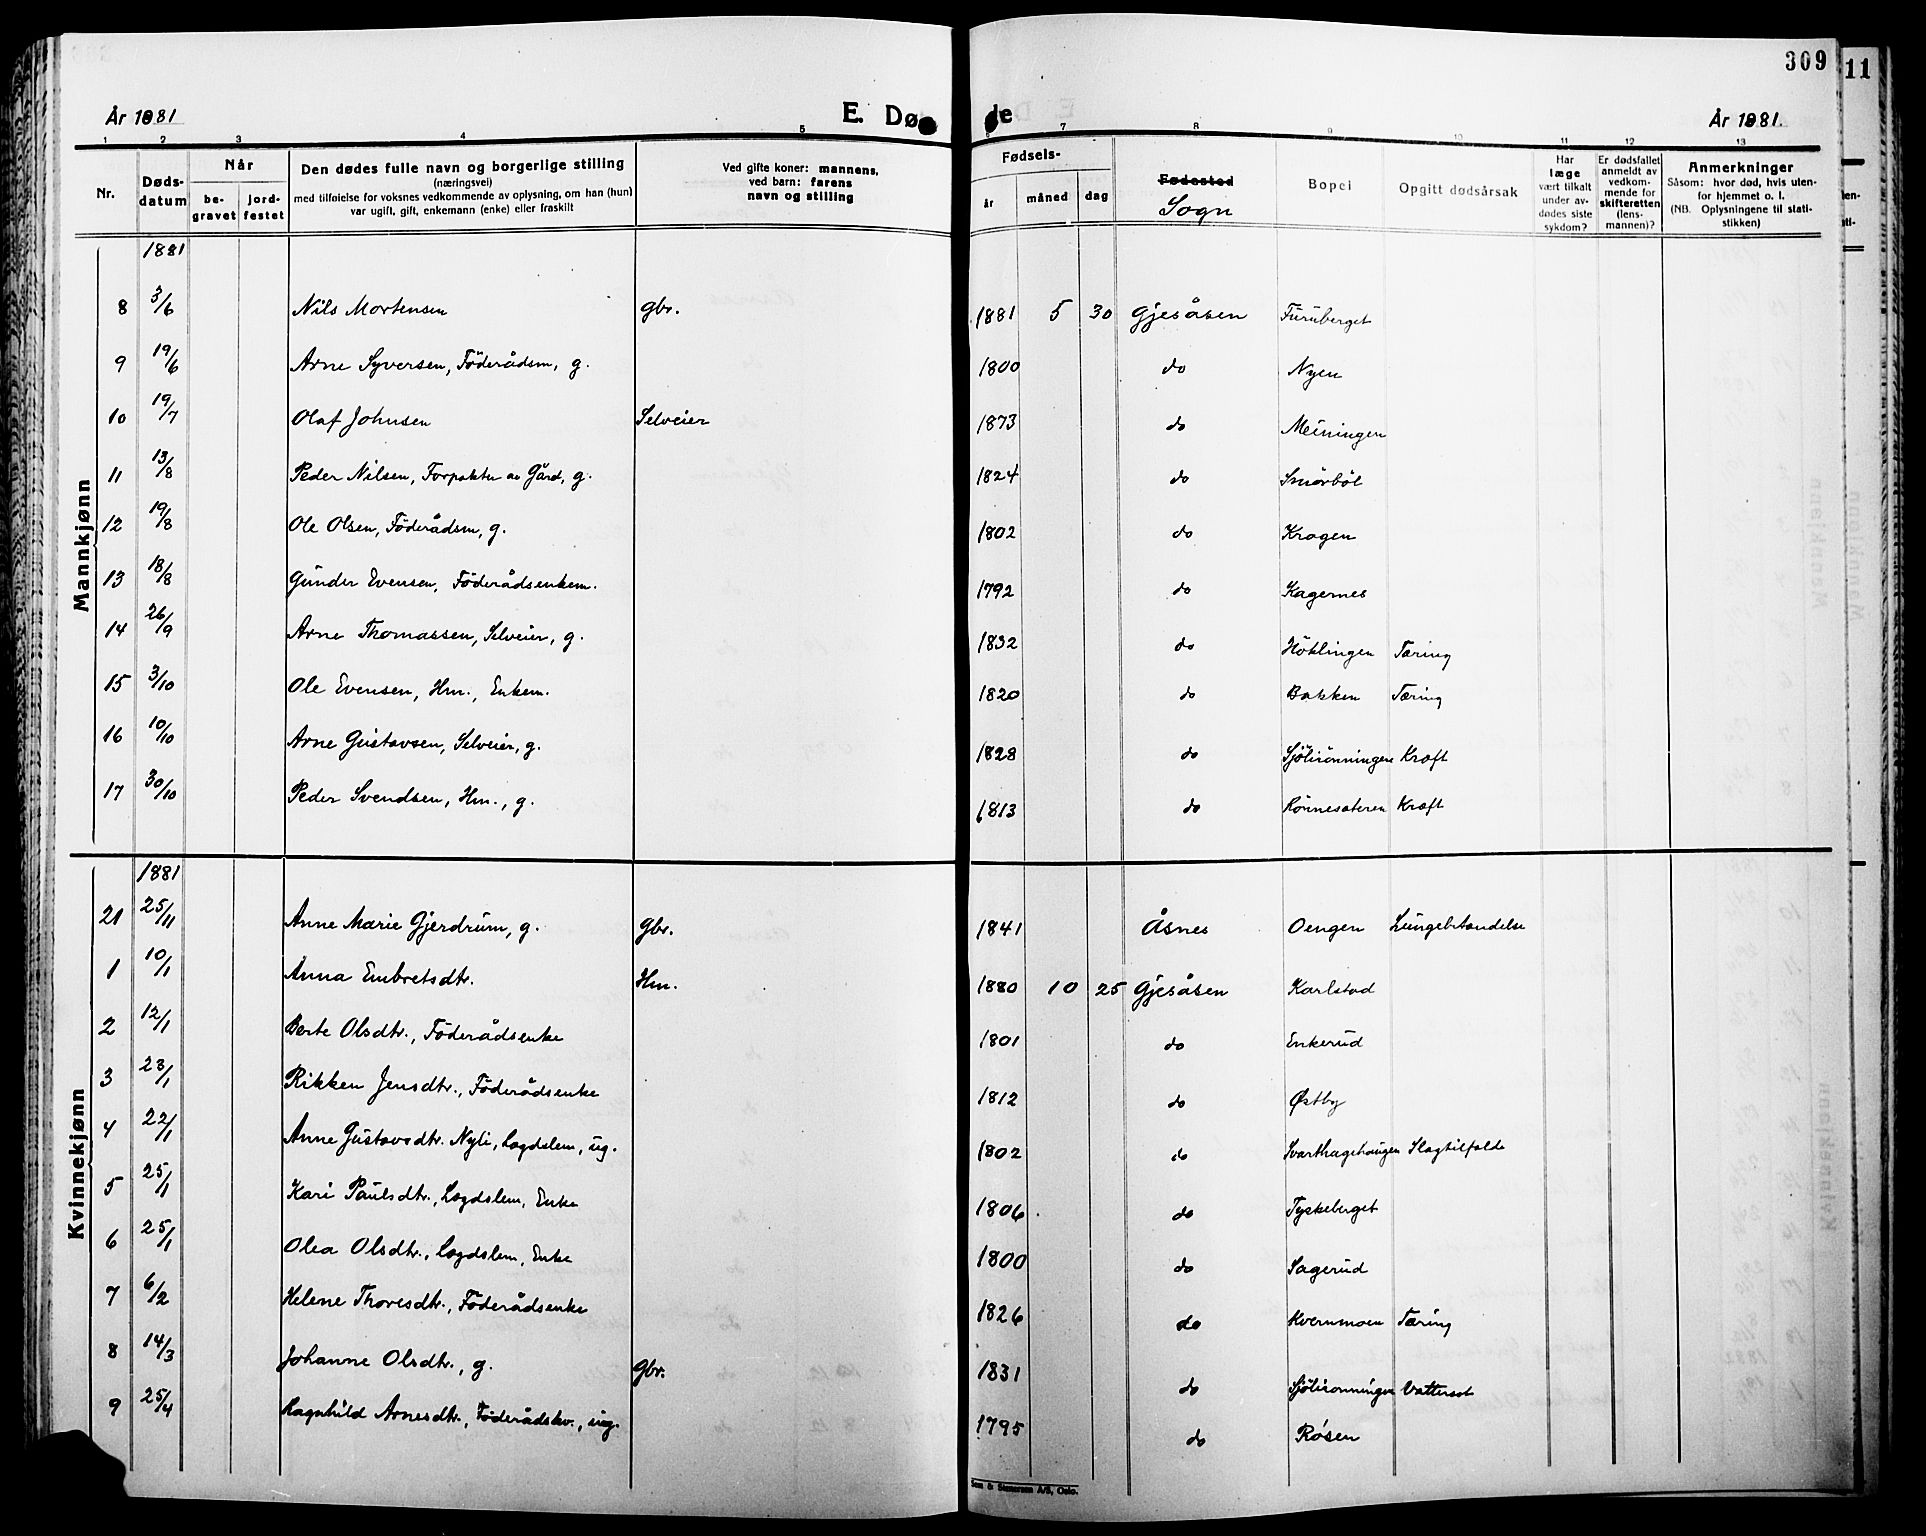 309
11
År 1881
E. Døde
År 1881.
1 2 3 4 5 6 7 8 9 10 11 12 13
Nr.
Døds-datum
Når
be-gravet
jord-festet
Den dødes fulle navn og borgerlige stilling
(næringsvei)
med tilføielse for voksnes vedkommende av oplysning, om han (hun)
var ugift, gift, enkemann (enke) eller fraskilt
Ved gifte koner: mannens,
ved barn: farens
navn og stilling
Fødsels-
år måned dag
Fødested
Sogn
Bopel
Opgitt dødsårsak
Har
læge
vært tilkalt
under av-
dødes siste
sykdom?
Er dødsfallet
anmeldt av
vedkom-
mende for
skifteretten
(lens-
mannen)?
Anmerkninger
Såsom: hvor død, hvis uten-
for hjemmet o. l.
(NB. Oplysningene til stati-
stikken)
Mannkjønn
1881
8 3/6 Nils Mortensen gbr. 1881 5 30 Gjesåsen Furuberget
9 19/6 Arne Syversen, Föderådsm, g. 1800 do Nyen
10 19/7 Olaf Johnsen Selveier 1873 do Meiningen
11 13/8 Peder Nilsen, Forpakter av Gård, g. 1824 do Smörböl
12 19/8 Ole Olsen, Föderådsm, g. 1802 do Kragen
13 18/8 Gunder Evensen, Föderådsenkem. 1792 do Kagernes
14 26/9 Arne Thomassen, Selveier, g. 1832 do Höklingen Tæring
15 3/10 Ole Evensen, Hm., Enkem. 1820 do Bakken Tæring
16 10/10 Arne Gustavsen, Selveier, g. 1828 do Sjölirönningen Kræft
17 30/10 Peder Svendsen, Hm., g. 1813 do Rönnesæteren Kræft
Kvinnekjønn
1881
21 25/11 Anne Marie Gjerdrum, g. Gbr. 1841 Åsnes Oengen Lungebetændelse
1 10/1 Anna Embretsdtr. Hm. 1880 10 25 Gjesåsen Karlstad
2 12/1 Berte Olsdtr., Föderådsenke 1801 do Enkerud
3 23/1 Rikken Jensdtr., Föderådsenke 1812 do Østby
4 22/1 Anne Gustavsdtr. Nyli, Lægdslem, ug. 1802 do Svarthagehaugen Slagtilfælde
5 25/1 Kari Paulsdtr., Lægdslem, Enke 1806 do Tyskeberget
6 25/1 Olea Olsdtr., Lægdslem, Enke 1800 do Sagerud
7 6/2 Helene Thoresdtr., Föderådsenke 1826 do Kvernmoen Tæring
8 14/3 Johanne Olsdtr., g. Gbr. 1831 do Sjölirönningen Vattersot
9 25/4 Ragnhild Arnesdtr., Föderådskv., ug. 1795 do Røsen
Sem & Stenersen A/S, Oslo.